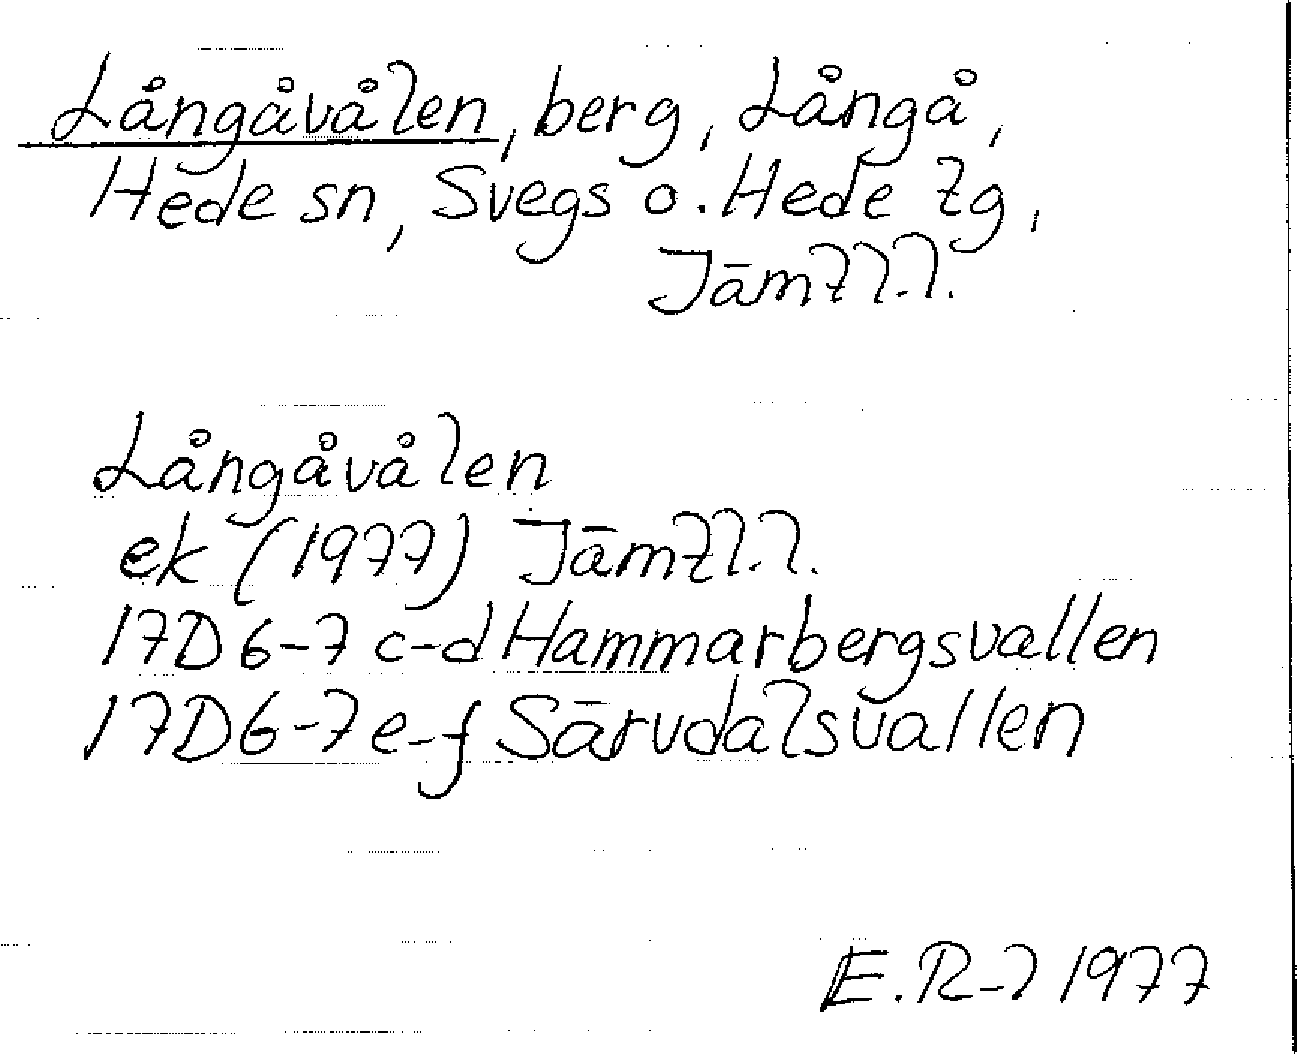 Långåvålen, berg, Långå,
Hede sn, Svegs o. Hede tg,
Jämtl.l.
Långåvålen
ek (1977) Jämtl.l.
17D 6-7 c-d Hammarbergsvallen
17D 6-7 e-f Särvdalsvallen
E.R-l 1977